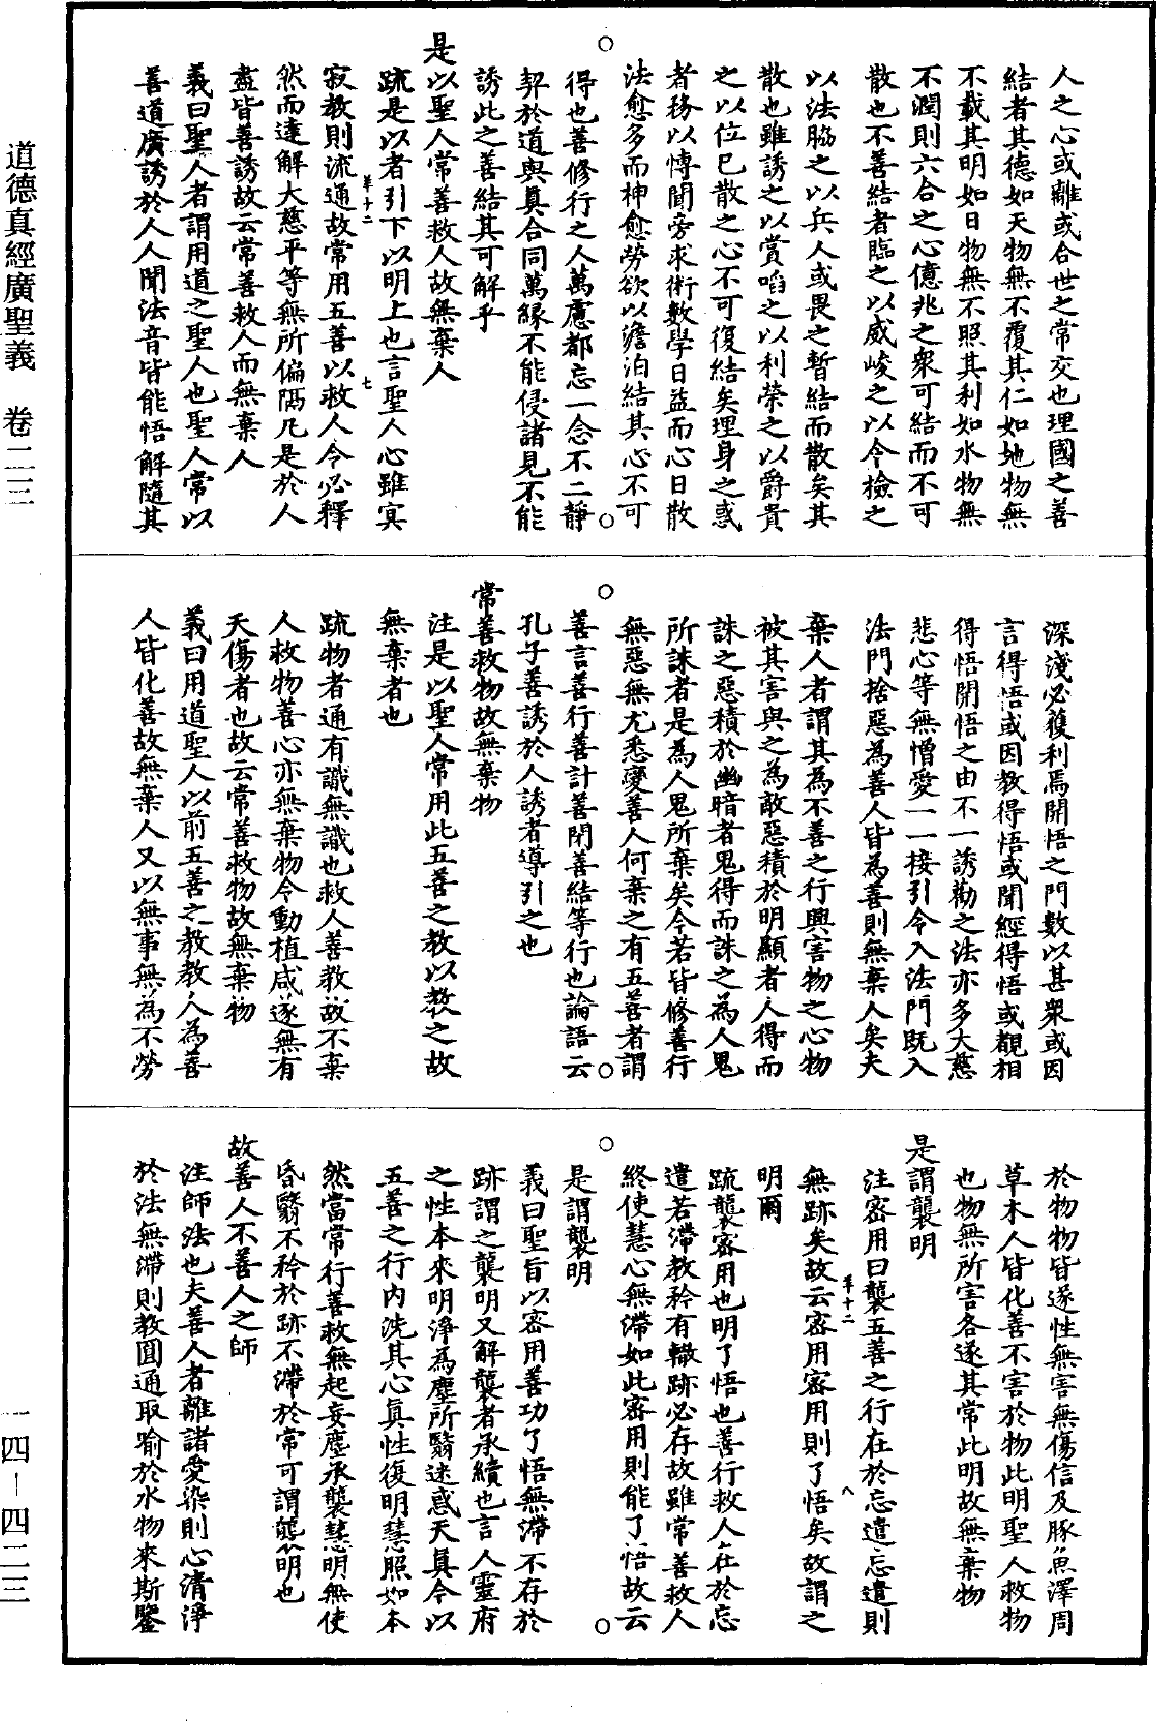 人之心或離或合世之常交也理國之善
結者其德如天物無不覆其仁如地物無
不載其明如日物無不照其利如水物無
不潤則六合之心億兆之衆可結而不可
散也不善結者臨之以威峻之以令檢之
以法脇之以兵人或畏之暫結而散矣其
散也雖誘之以賞啗之以利榮之以爵貴
之以位巳散之心不可復結矣理身之惑
者務以愽聞旁求術數學日益而心日散
法愈多而神愈勞欲以澹泊結其心不可
得也善修行之人萬慮都忘一念不二靜
契於道與真合同萬緣不能侵諸見不能
誘此之善結其可解乎
是以聖人常善救人故無棄人
疏是以者引下以明上也言聖人心雖寂
寂教則流通故常用五善以救人令必釋
羊十二
七
然而達解大慈平等無所偏隔凡是於人
盡皆善誘故云常善救人而無棄人
義曰聖人者謂用道之聖人也聖人常以
善道廣誘於人人聞法音皆能悟解隨其
深淺必獲利焉開悟之門數以甚衆或因
言得悟或因教得悟或聞經得悟或覩相
得悟開悟之由不一誘勸之法亦多大慈
悲心等無憎愛一一接引令入法門既入
法門捨惡為善人皆為善則無棄人矣夫
棄人者謂其為不善之行興害物之心物
被其害與之為敵惡積於明顯者人得而
誅之惡積於幽暗者鬼得而誅之為人鬼
所誅者是為人鬼所棄矣今若皆修善行
無惡無尤悉變善人何棄之有五善者謂
善言善行善計善閉善結等行也論語云
孔子善誘於人誘者導引之也
常善救物故無棄物
注是以聖人常用此五善之教以教之故
無棄者也
疏物者通有識無識也救人善教故不棄
人救物善心亦無棄物令動植咸遂無有
夭傷者也故云常善救物故無棄物
義曰用道聖人以前五善之教教人為善
人皆化善故無棄人又以無事無為不勞
於物物皆遂性無害無傷信及豚魚澤周
草木人皆化善不害於物此明聖人救物
也物無所害各遂其常此明故無棄物
是謂襲明
注密用曰襲五善之行在於忘遣忘遣則
羊十二
八
無跡矣故云密用密用則了悟矣故謂之
明爾
疏襲密用也明了悟也善行救人在於忘
遣若滯教矜有轍跡必存故雖常善救人
終使慧心無滯如此密用則能了悟故云
是謂襲明
義曰聖旨以密用善功了悟無滯不存於
跡謂之襲明又解襲者承續也言人靈府
之性本來明淨為塵所翳迷惑天真今以
五善之行內洗其心真性復明慧照如本
然當常行善救無起妄塵承襲慧明無使
昏翳不矜於跡不滯於常可謂襲明也
故善人不善人之師
注師法也夫善人者離諸愛染則心清淨
於法無滯則教圓通取喻於水物來斯鑒
道德真經廣聖義　卷二三
一四－四二三